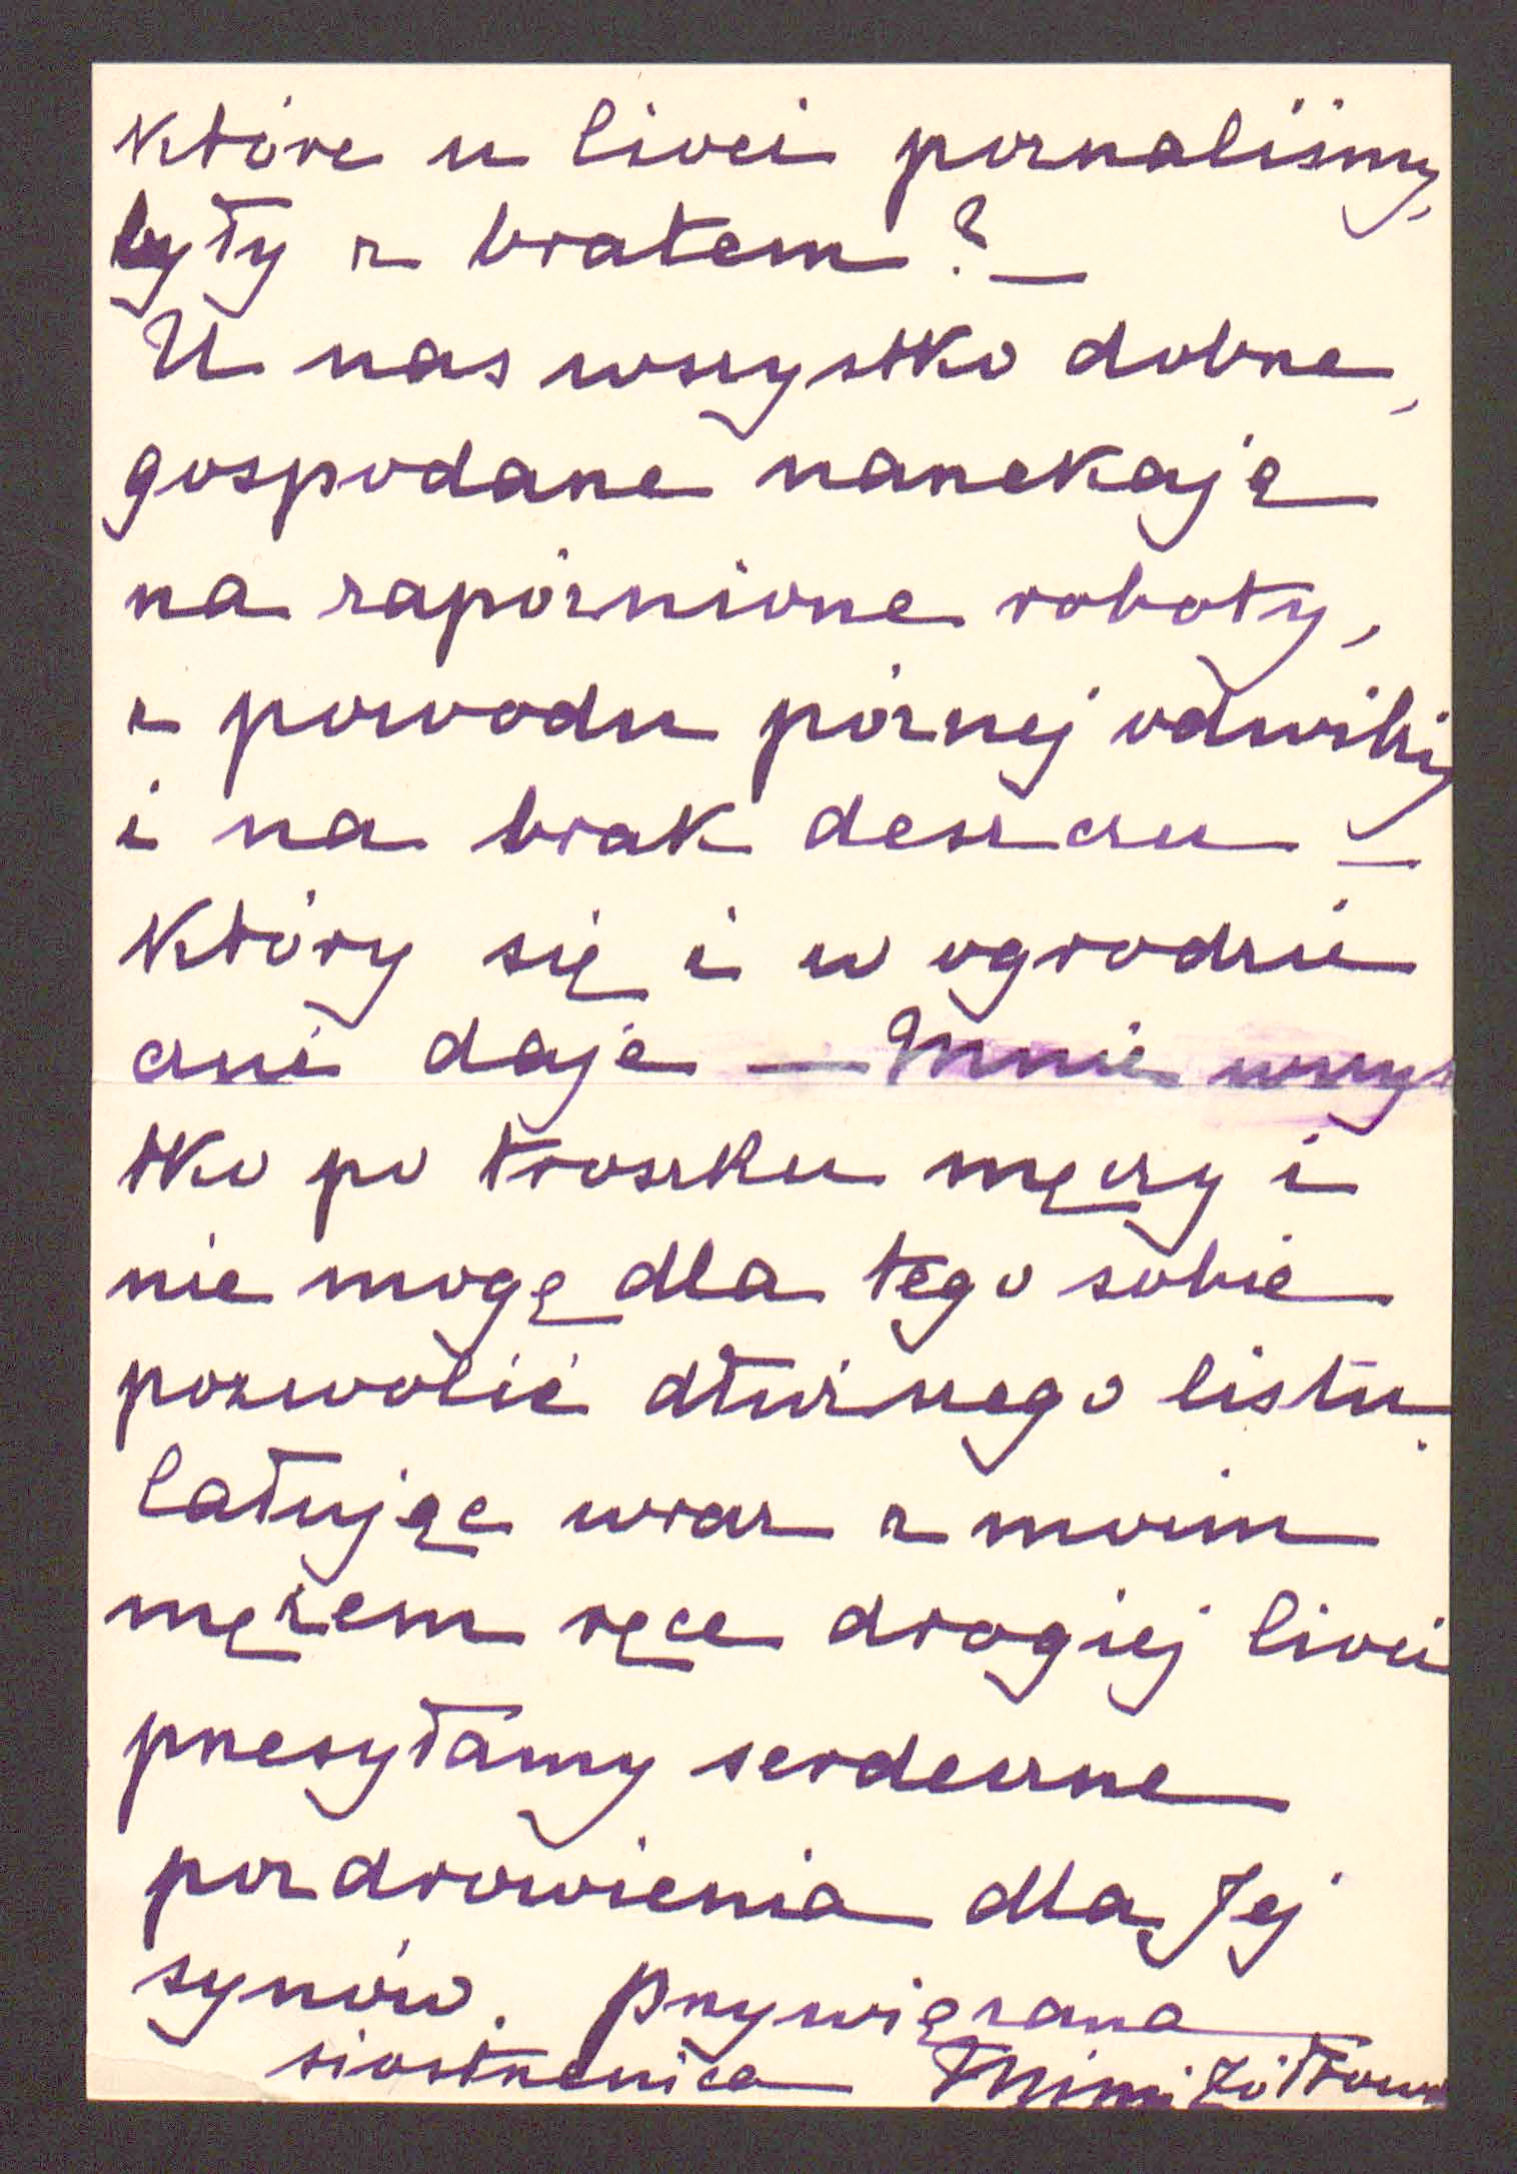 które u Cioci poznaliśmy,
były z bratem? —
U nas wszystko dobrze,
gospodarze narzekają
na zapóźnione roboty,
z powodu późnej odwilży
i na brak deszczu —
który się i w ogrodzie
czuć daje — Mnie wszys
tko po troszku męczy i
nie mogę dla tego sobie
pozwolić dłuższego listu.
Całując wraz z moim
mężem ręce drogiej Cioci
przesyłamy serdeczne
pozdrowienia dla Jej
synów. Przywiązana
siostrzenica Mimi Żółtow